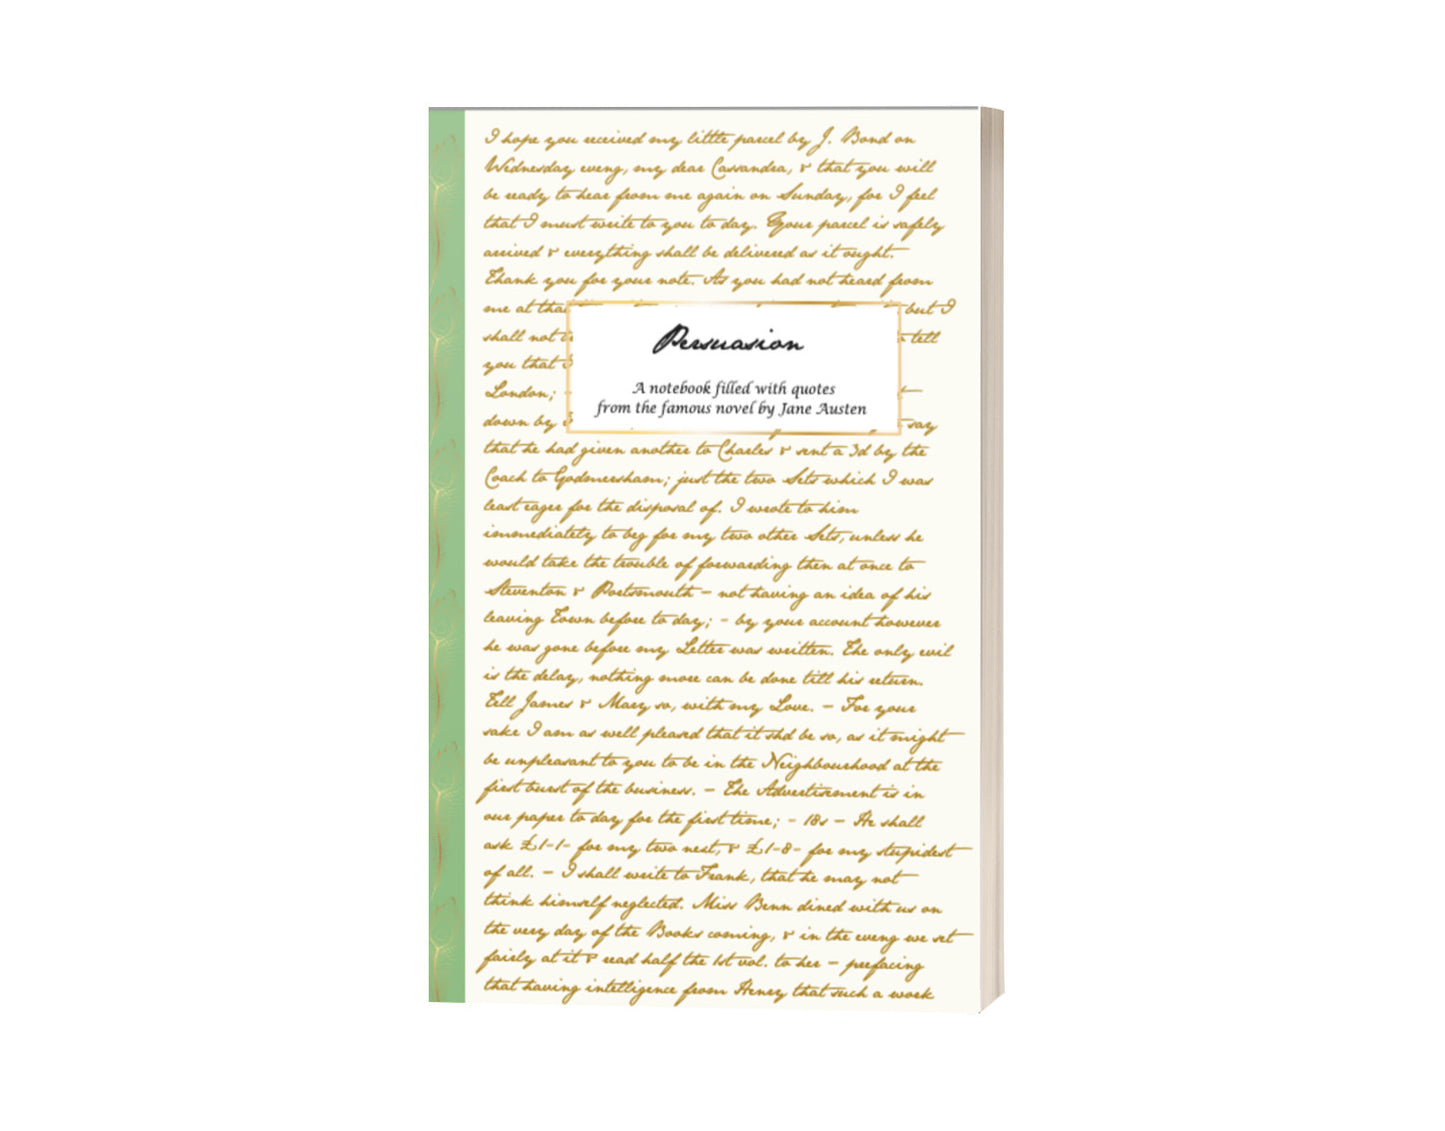 I hope you received my little parcel by J. Bond on
Wednesday eveng, my dear Cassandra, & that you will
be ready to hear from me again on Sunday, for I feel
that I must write to you to day. Your parcel is safely
arrived & everything shall be delivered as it ought.
Thank you for your note. As you had not heard from
me at that but I
shall not tell
you that I
London;
down by say
Persuasion
A notebook filled with quotes
from the famous novel by Jane Austen
that he had given another to Charles & sent a 3d by the
Coach to Godmersham; just the two Sets which I was
least eager for the disposal of. I wrote to him
immediately to beg for my two other Sets, unless he
would take the trouble of forwarding then at once to
Steventon & Portsmouth - not having an idea of his
leaving Town before to day; - by your account however
he was gone before my Letter was written. The only evil
is the delay, nothing more can be done till his return.
Tell James & Mary so, with my Love. - For your
sake I am as well pleased that it shd be so, as it might
be unpleasant to you to be in the Neighbourhood at the
first burst of the business. - The Advertisement is in
our paper to day for the first time; - 18s - He shall
ask £1-1- for my two next, & £1-8- for my stupidest
of all. - I shall write to Frank, that he may not
think himself neglected. Miss Benn dined with us on
the very day of the Books coming, & in the eveng we set
fairly at it & read half the 1st vol. to her - prefacing
that having intelligence from Henry that such a work